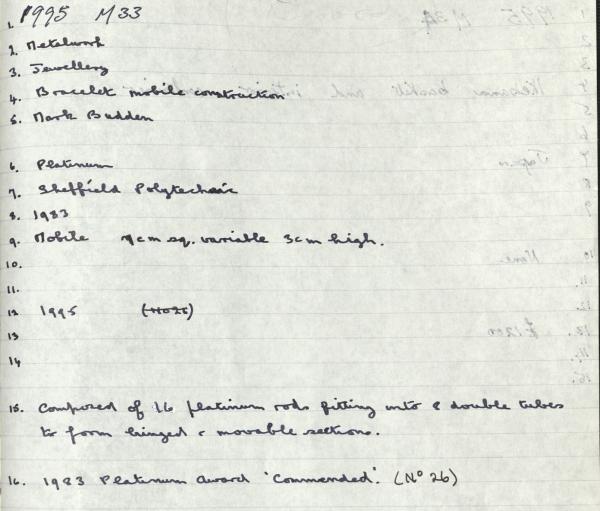 1. 1995 M33
2. Metalwork
3. Jewellery
4. Bracelet mobile construction
5. Mark Budden
6. Platinum
7. Sheffield Polytechnic
8. 1983
9. Mobile 7cm sq. variable 3cm high.
10.
11.
12 1995 (No 26)
13
14
15. Composed of 16 platinum rods fitting into 8 double tubes
to form hinged & movable sections.
16. 1983 Platinum award 'Commended'. (No 26)